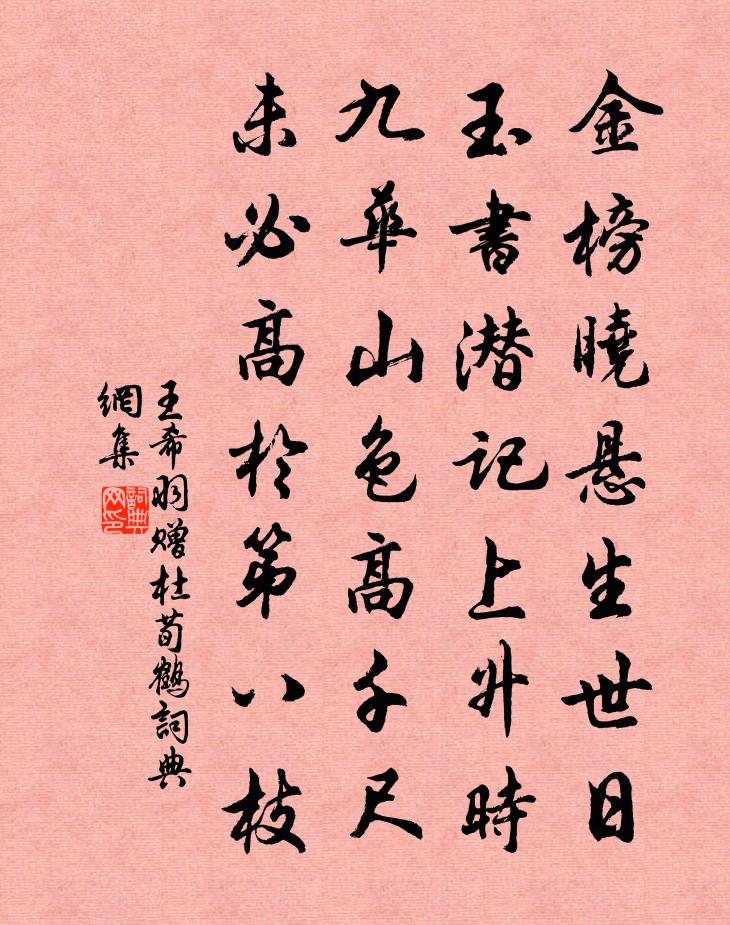 金榜曉悬生世日
玉書潜记上升時
九華山色高千尺
未必高於第八枝
王希羽赠杜荀鶴詞典
網集
詞典
网印